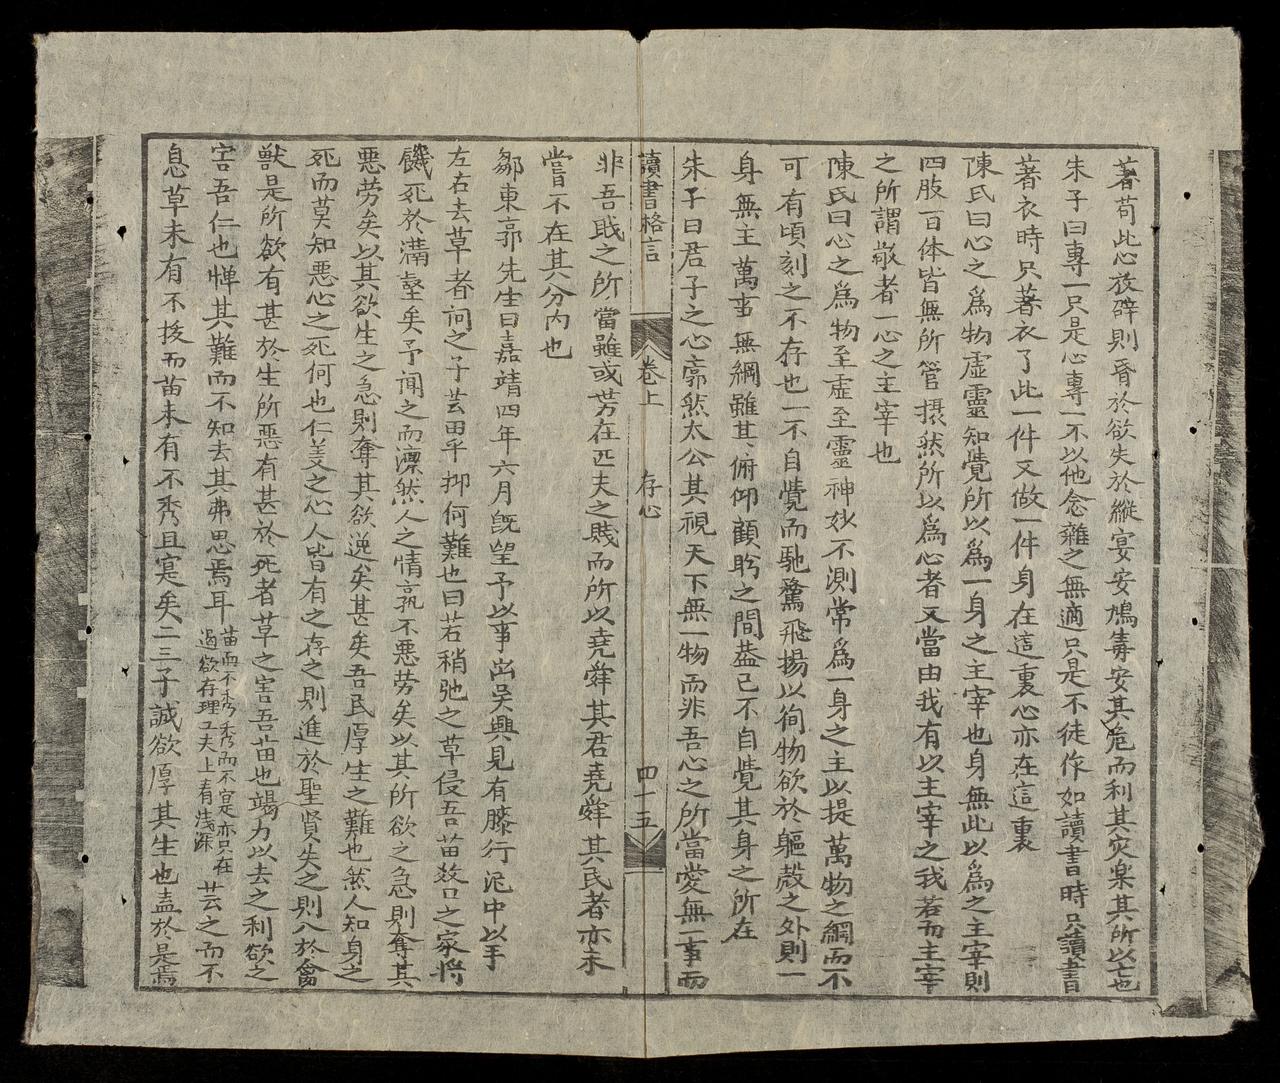 著苟此心放辟則昏於欲失於縱宴安鴆毒安其危而利其灾楽其所以亡也
朱子曰專一只是心專一不以他念雜之無適只是不徒作如讀書時只讀書
著衣時只著衣了此一件又做一件身在這裏心亦在這裏
陳氏曰心之爲物虚靈知覺所以爲一身之主宰也身無此以爲之主宰則
四肢百体皆無所管摄然所以爲心者又當由我有以主宰之我若而主宰
之所謂敬者一心之主宰也
陳氏曰心之爲物至虚至靈神妙不測常爲一身之主以提萬物之綱而不
可有頃刻之不存也一不自覺而馳騖飛揚以徇物欲於軀殻之外則一
身無主萬事無綱雖其俯仰顧盻之間葢已不自覺其身之所在
朱子曰君子之心廓然太公其視天下無一物而非吾心之所當愛無一事而
讀書格言 卷上 存心 四十五
非吾戝之所當雖或势在匹夫之賎而所以堯舜其君堯舜其民者亦未
嘗不在其分内也
鄒東廓先生曰嘉靖四年六月既望予以事出吳興見有膝行泥中以手
左右去草者问之子芸田乎抑何難也曰若稍弛之草侵吾苗数口之家将
饑死於溝壑矣予闻之而凛然人之情孰不悪劳矣以其所欲之急則奪其
悪劳矣以其欲生之急則奪其欲逸矣甚矣吾民厚生之難也然人知身之
死而莫知悪心之死何也仁义之心人皆有之存之則進於聖賢失之則入於禽
獸是所欲有甚於生所悪有甚於死者草之害吾苗也竭力以去之利欲之
害吾仁也惮其難而不知去其弗思焉耳 苗而不秀秀而不寔亦只在 遏欲存理工夫上有浅深 芸之而不
息草未有不拔而苗未有不秀且寔矣二三子誠欲厚其生也盍於是焉